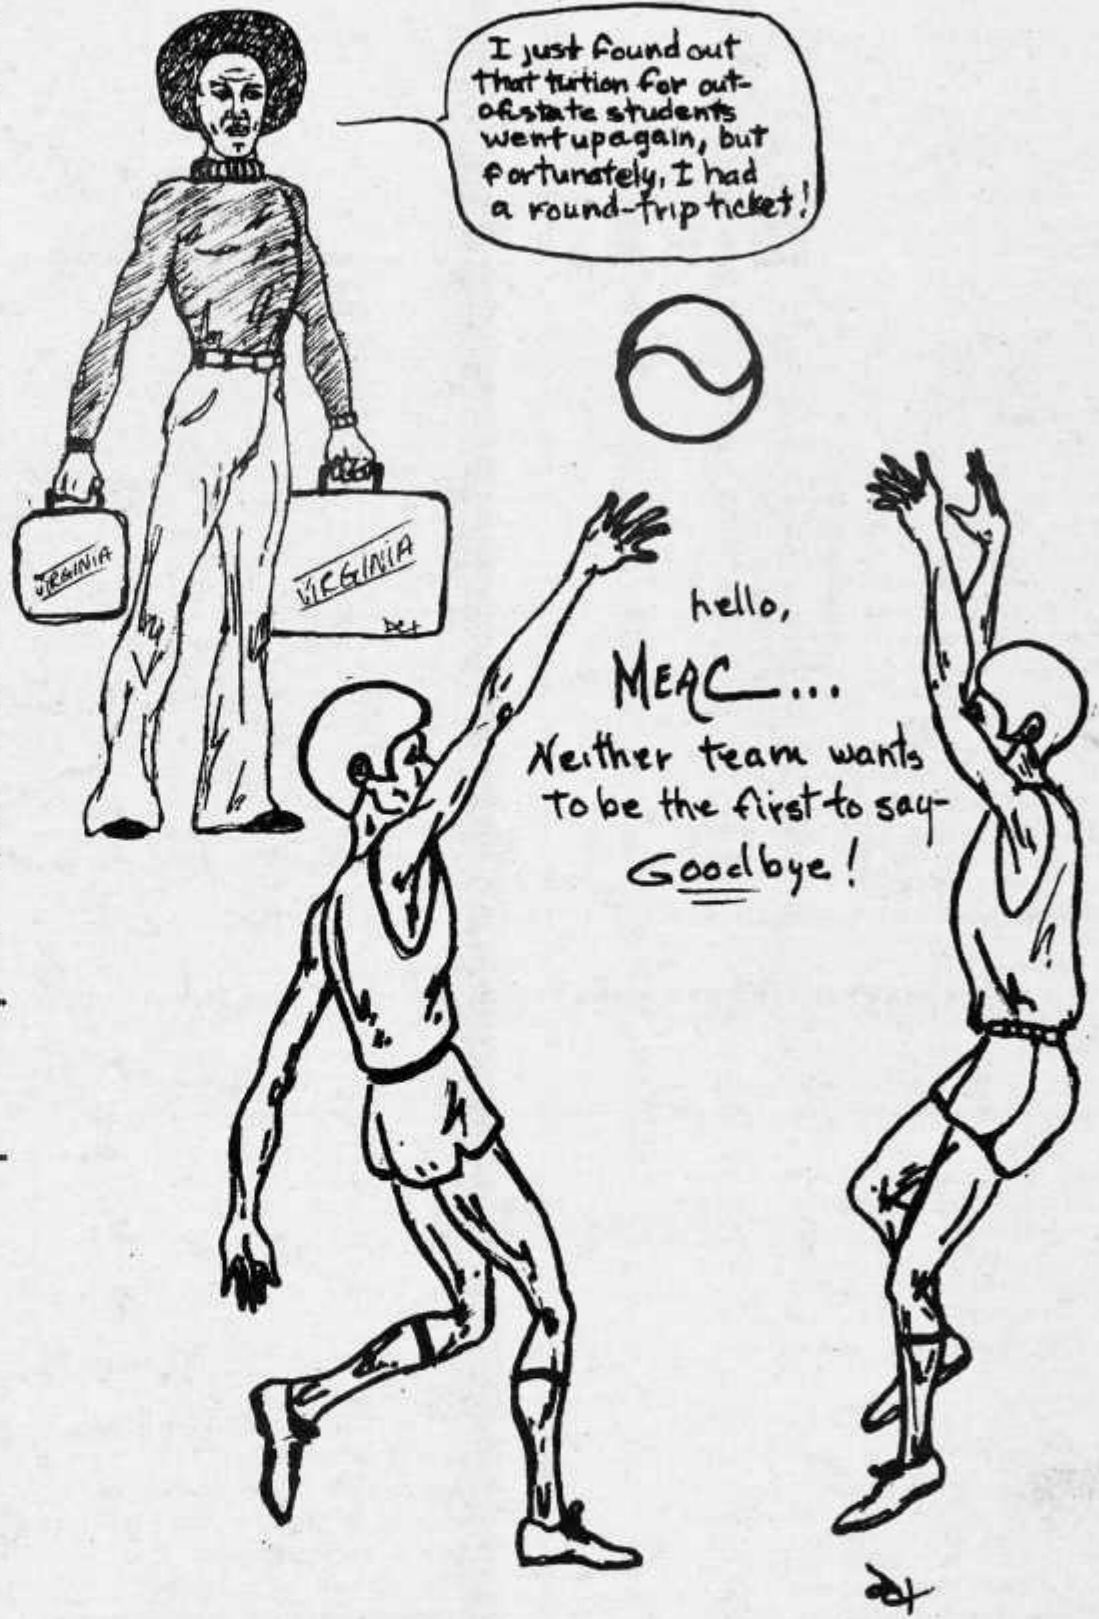 I just found out
that tution for out-
of state students
went up again, but
fortunately, I had
a round-trip ticket!
VIRGINIA
VIRGINIA
hello,
MEAC...
Neither team wants
to be the first to say-
Goodbye!